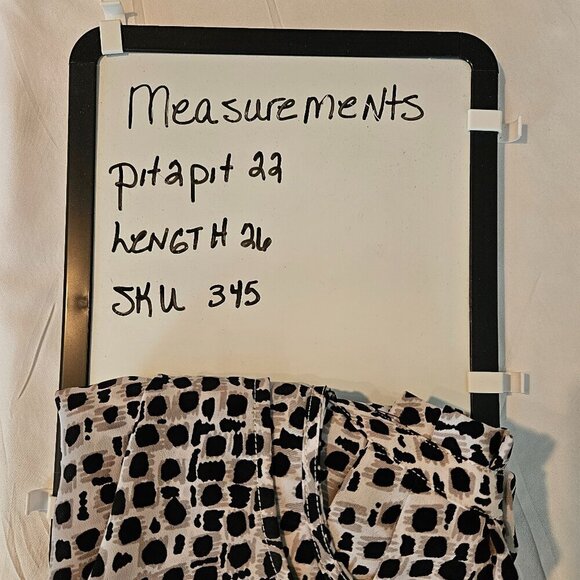 Measurements
pit2pit 22
LENGTH 26
SKU 345